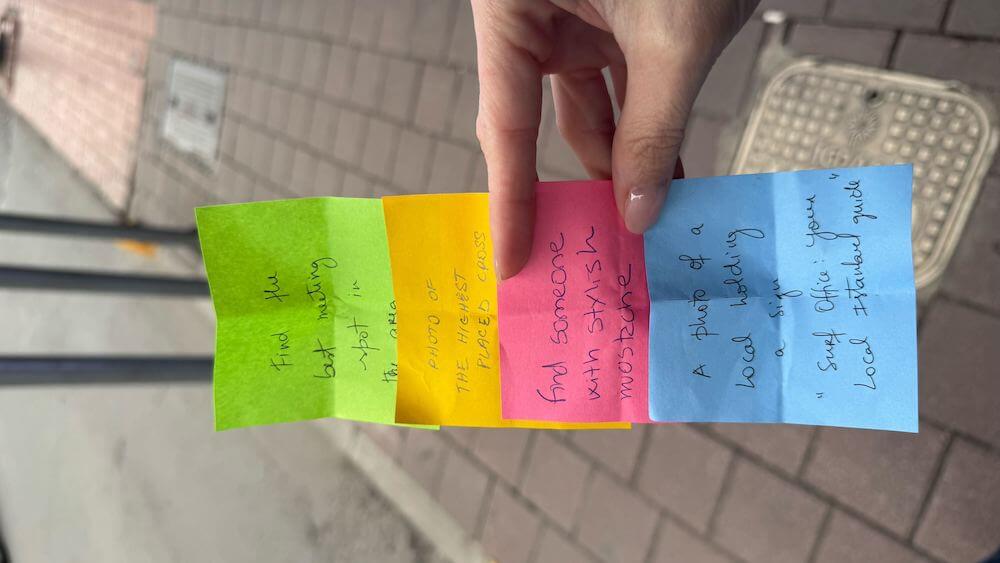 Find the
best meeting
spot in
the area
PHOTO OF
THE HIGHEST
PLACED CROSS
find someone
with stylish
mostache
A photo of a
Local holding
a sign
"Surf Office: your
Local Istanbul guide"